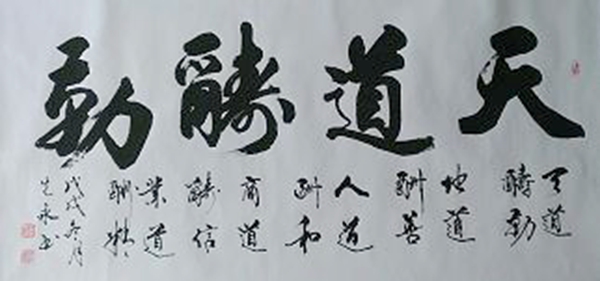 天道醻勤
天道
醻勤
地道
酬善
人道
酬和
商道
醻信
業道
酬精
戊戌冬月